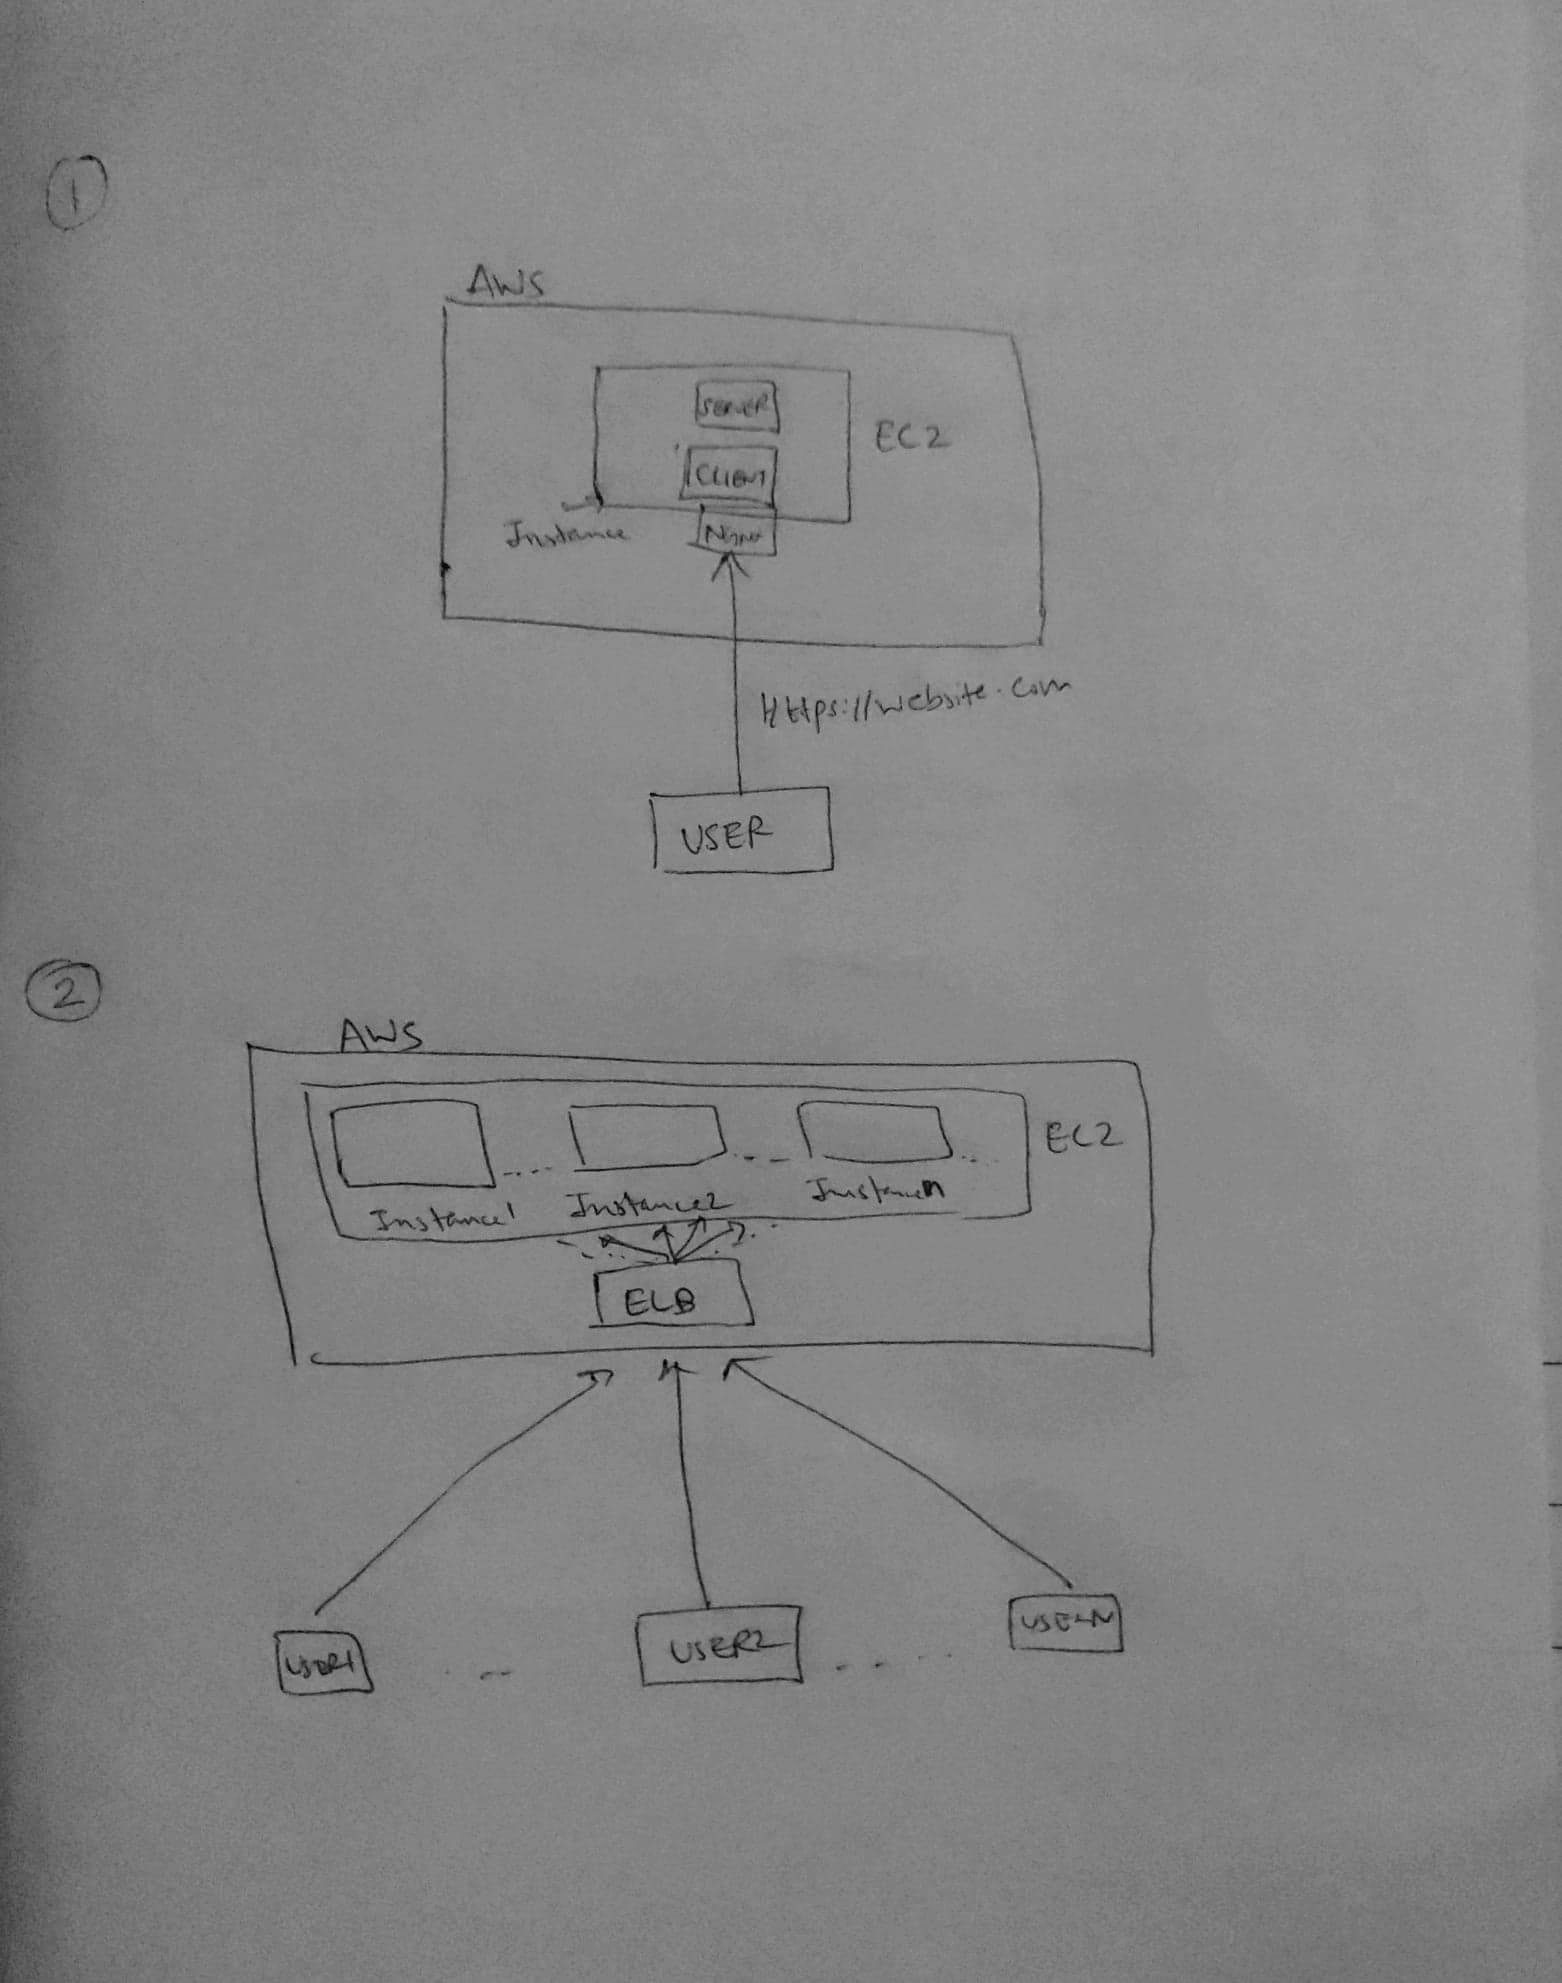 1
AWS
SERVER
EC2
CLIENT
Instance
Https://website.com
USER
2
AWS
EC2
Instance1 Instance2 Instancen
ELB
USER1 USER2 USERN